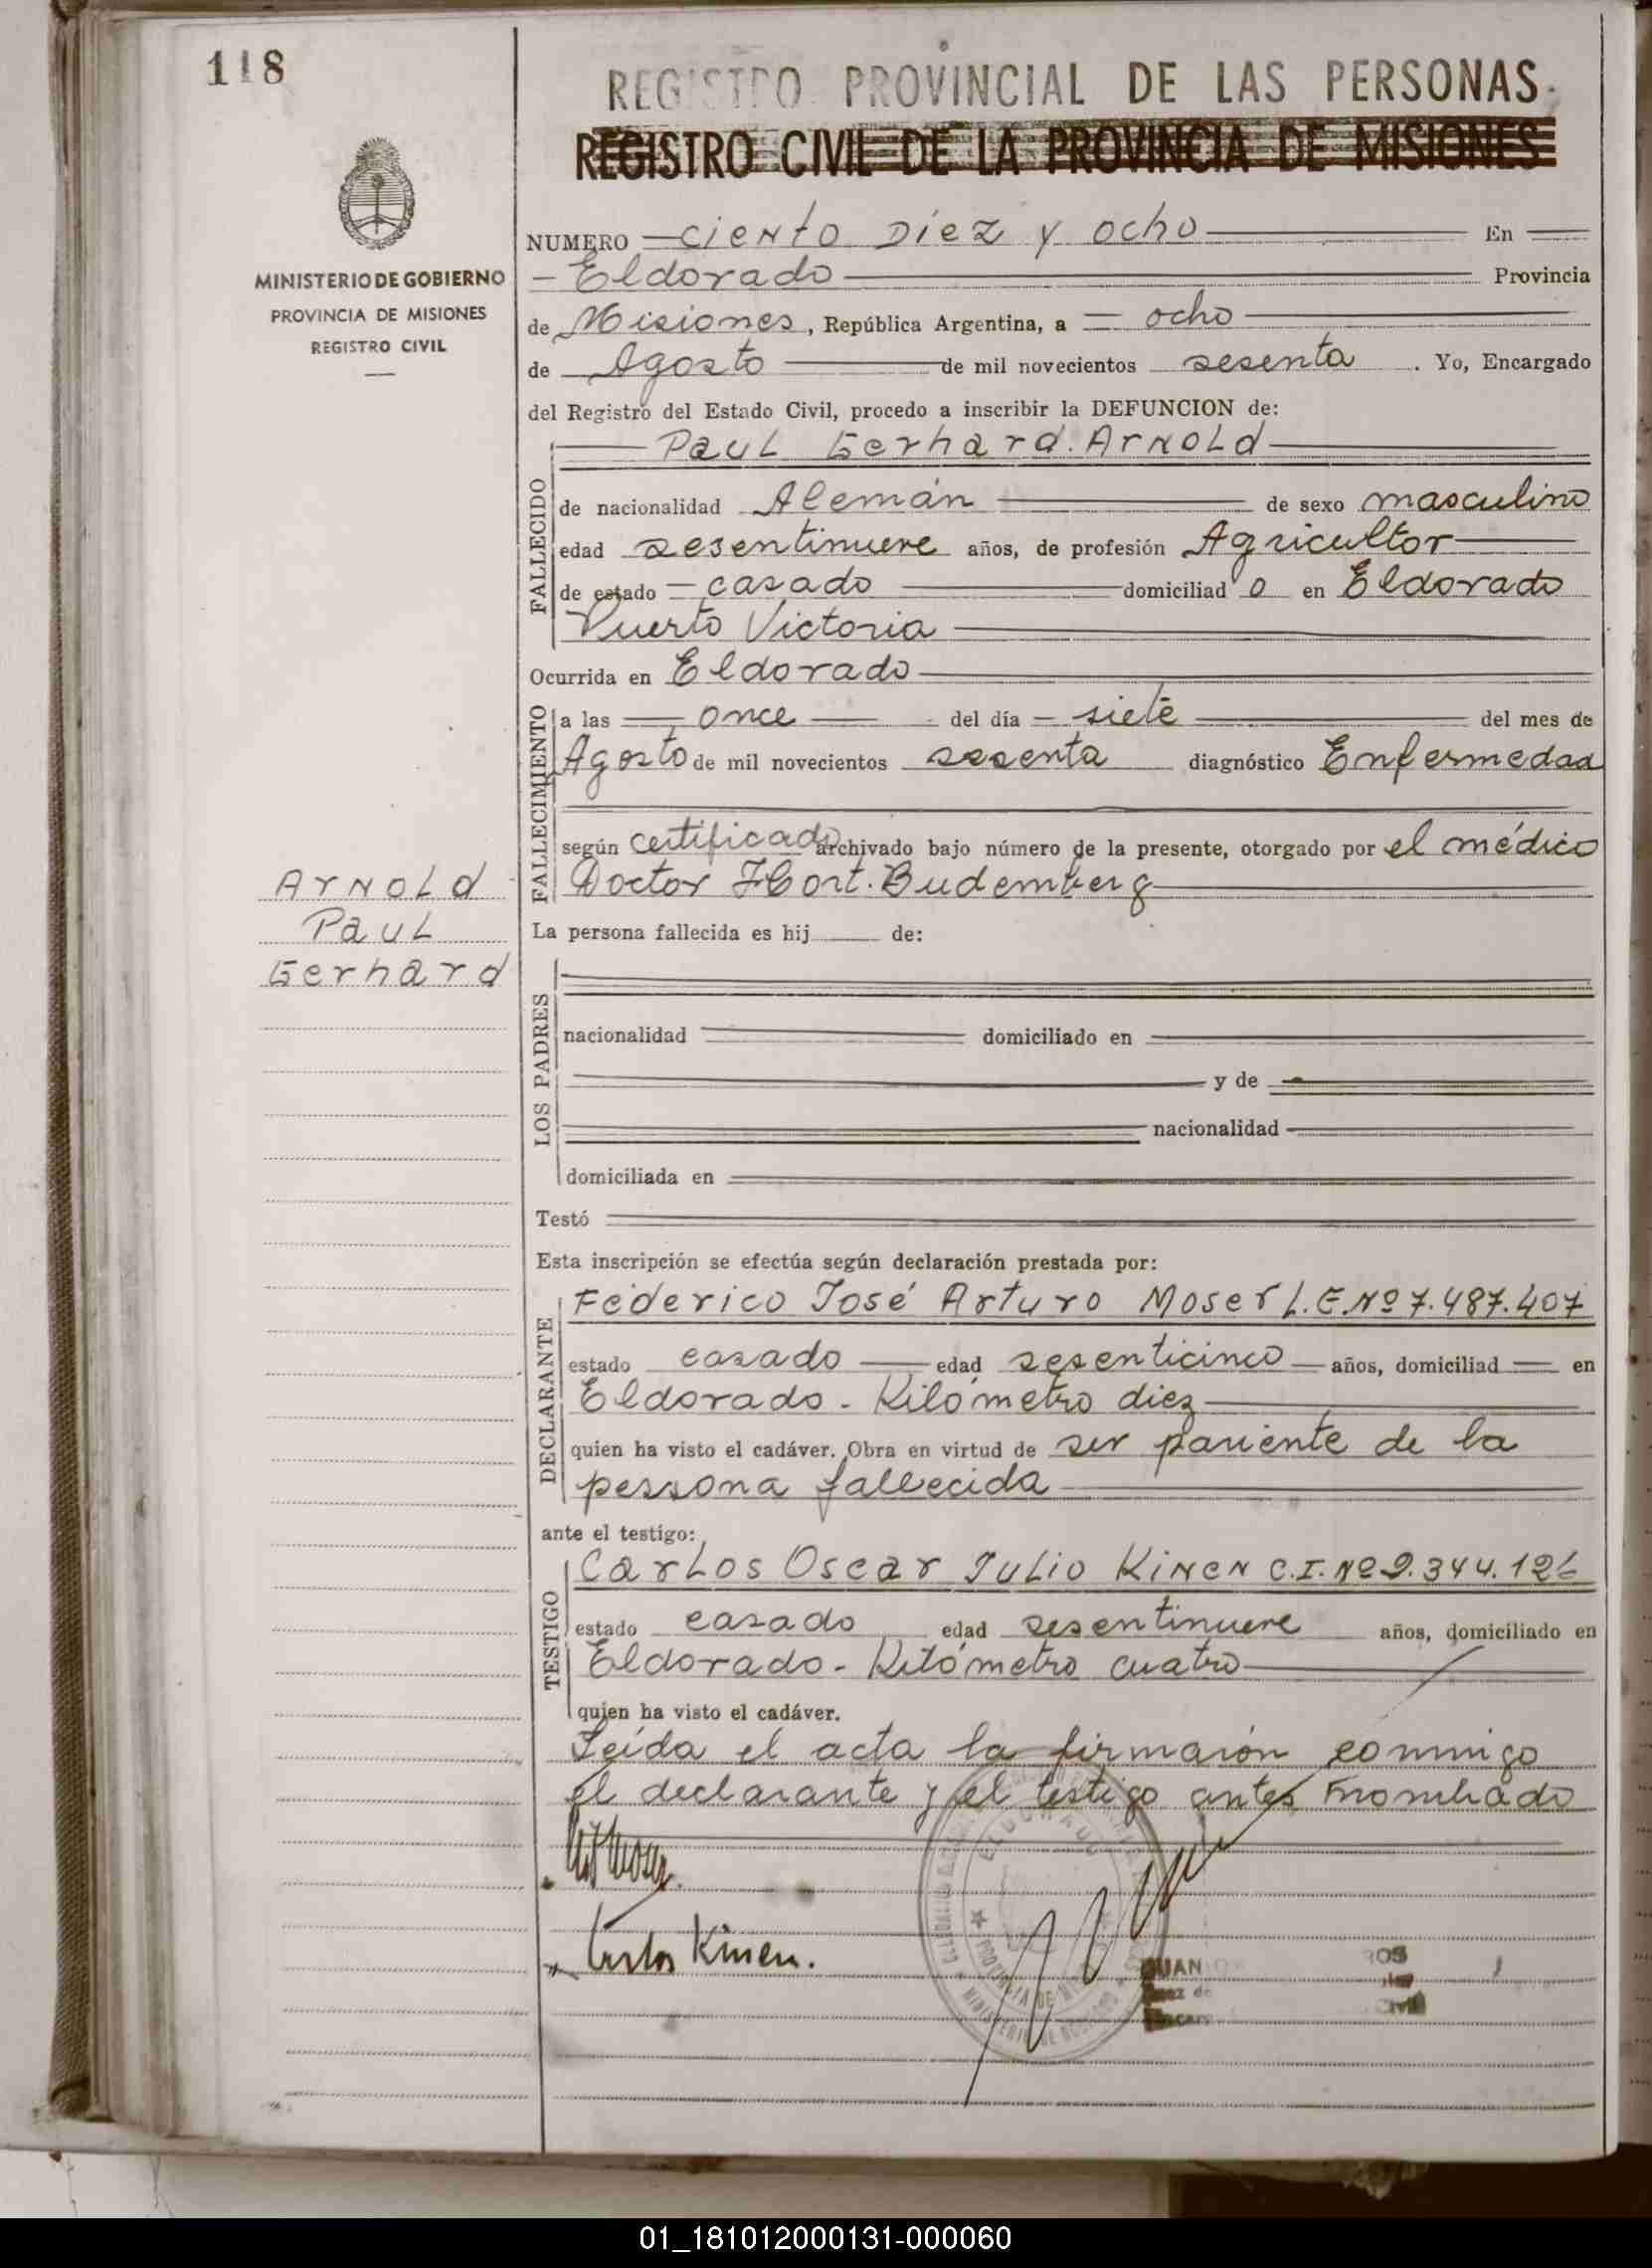 118
REGISTRO PROVINCIAL DE LAS PERSONAS.
REGISTRO CIVIL DE LA PROVINCIA DE MISIONES
MINISTERIO DE GOBIERNO
PROVINCIA DE MISIONES
REGISTRO CIVIL
NUMERO ciento Diez y ocho En
Eldorado Provincia
de Misiones, República Argentina, a ocho
de Agosto de mil novecientos sesenta. Yo, Encargado
del Registro del Estado Civil, procedo a inscribir la DEFUNCION de:
Paul Gerhard. Arnold
FALLECIDO
de nacionalidad Alemán de sexo masculino
edad sesentinueve años, de profesión Agricultor
de estado casado domiciliad o en Eldorado
Puerto Victoria
Ocurrida en Eldorado
FALLECIMIENTO
a las once del día siete del mes de
Agosto de mil novecientos sesenta diagnóstico Enfermedad
según certificado archivado bajo número de la presente, otorgado por el médico
Doctor Hort. Budemberg
Arnold
Paul
Gerhard
La persona fallecida es hij de:
LOS PADRES
nacionalidad domiciliado en
y de
nacionalidad
domiciliada en
Testó
Esta inscripción se efectúa según declaración prestada por:
DECLARANTE
Federico José Arturo Moser L.E.Nº 7.487.407
estado casado edad sesenticinco años, domiciliad en
Eldorado - Kilómetro diez
quien ha visto el cadáver. Obra en virtud de ser pariente de la
persona fallecida
ante el testigo:
TESTIGO
Carlos Oscar Julio Kinen C.I.Nº 9.344.126
estado casado edad sesentinueve años, domiciliado en
Eldorado - Kilómetro cuatro
quien ha visto el cadáver.
Leída el acta la firmarón conmigo
el declarante y el testigo antes mombrado
Carlos Kinen.
ELDORADO
JUAN
01_181012000131-000060